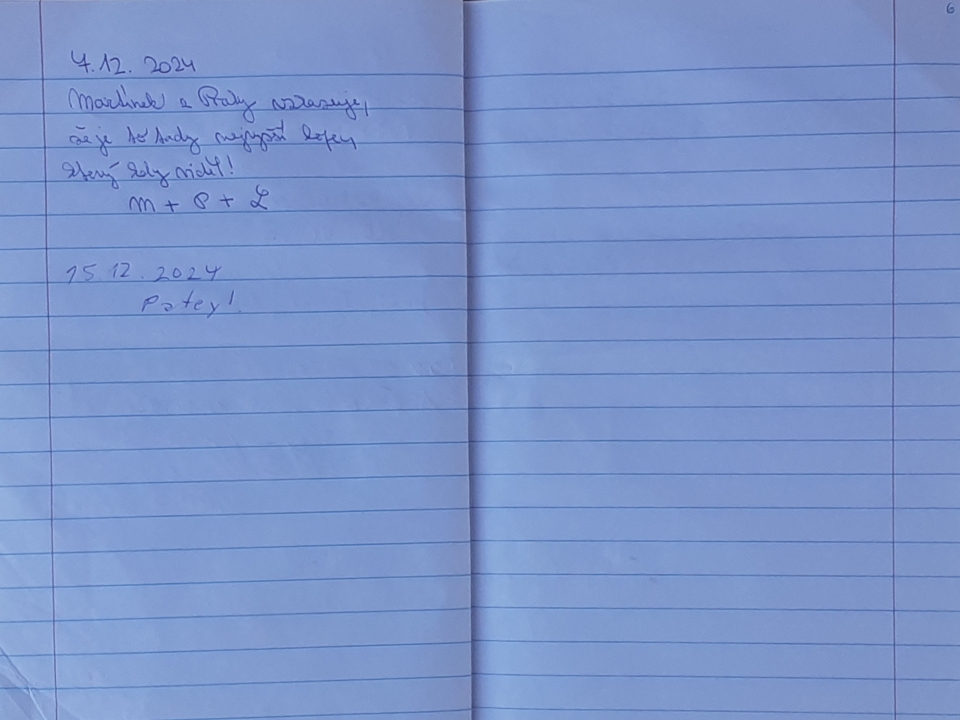 7.12. 2024
Martínek a Páty vzkazuje,
že je to tady nejvyšší kopec,
který kdy viděl!
M + P + L
15.12.2024
Patey!
6